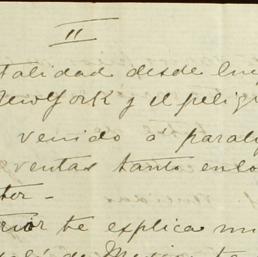 II
talidad desde lue
New York y el pelig
venido á paraly
ventas tanto en lo
ter-
rior te explica mi